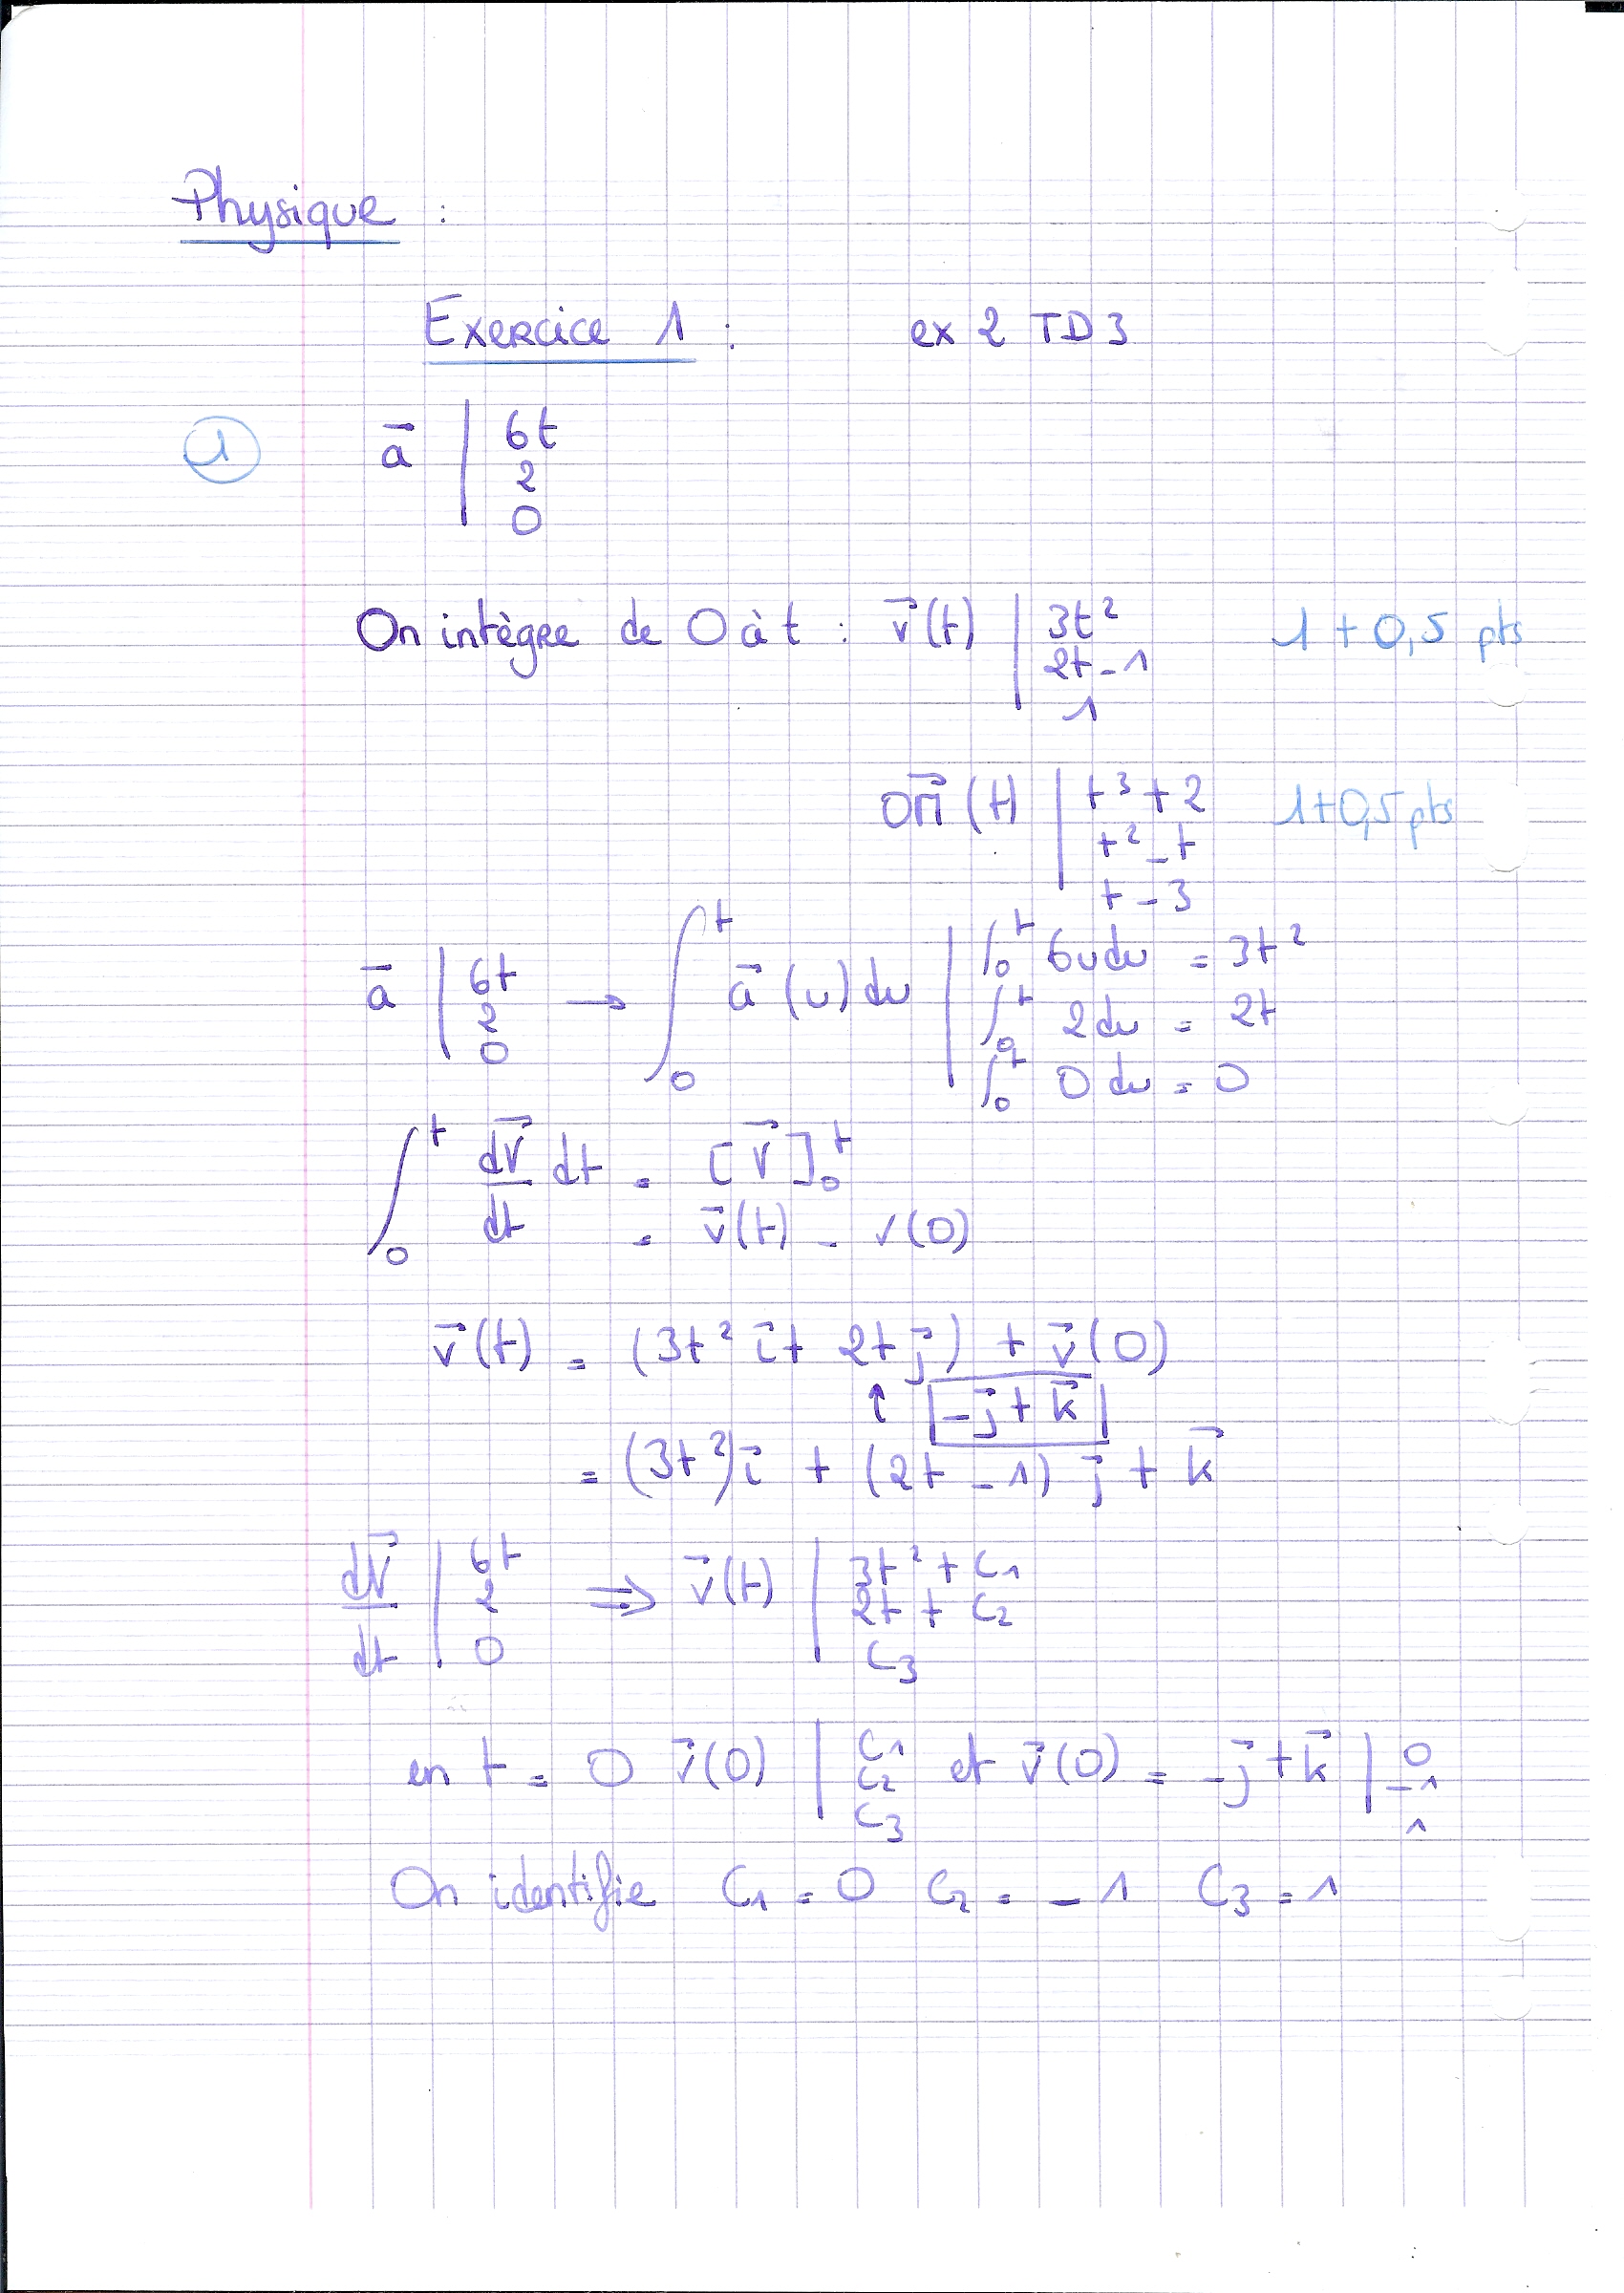 Physique :
Exercice 1 : ex 2 TD 3
1 a⃗ | 6t
2
0
On intègre de 0 à t : v⃗(t) | 3t² 1 + 0,5 pts
2t - 1
1
OM⃗ (t) | t³ + 2 1+0,5 pts
t² - t
t - 3
a⃗ | 6t → ∫₀ᵗ a⃗ (u) du | ∫₀ᵗ 6u du = 3t²
2 ∫₀ᵗ 2 du = 2t
0 ∫₀ᵗ 0 du = 0
∫₀ᵗ dv⃗/dt dt = [v⃗]₀ᵗ
= v⃗(t) - v(0)
v⃗(t) = (3t² i⃗ + 2t j⃗) + v⃗(0)
↑ -j⃗ + k⃗
= (3t²) i⃗ + (2t - 1) j⃗ + k⃗
dv⃗/dt | 6t ⇒ v⃗(t) | 3t² + C₁
2 2t + C₂
0 C₃
en t = 0 v⃗(0) | C₁ et v⃗(0) = -j⃗ + k⃗ | 0
C₂ -1
C₃ 1
On identifie C₁ = 0 C₂ = - 1 C₃ = 1